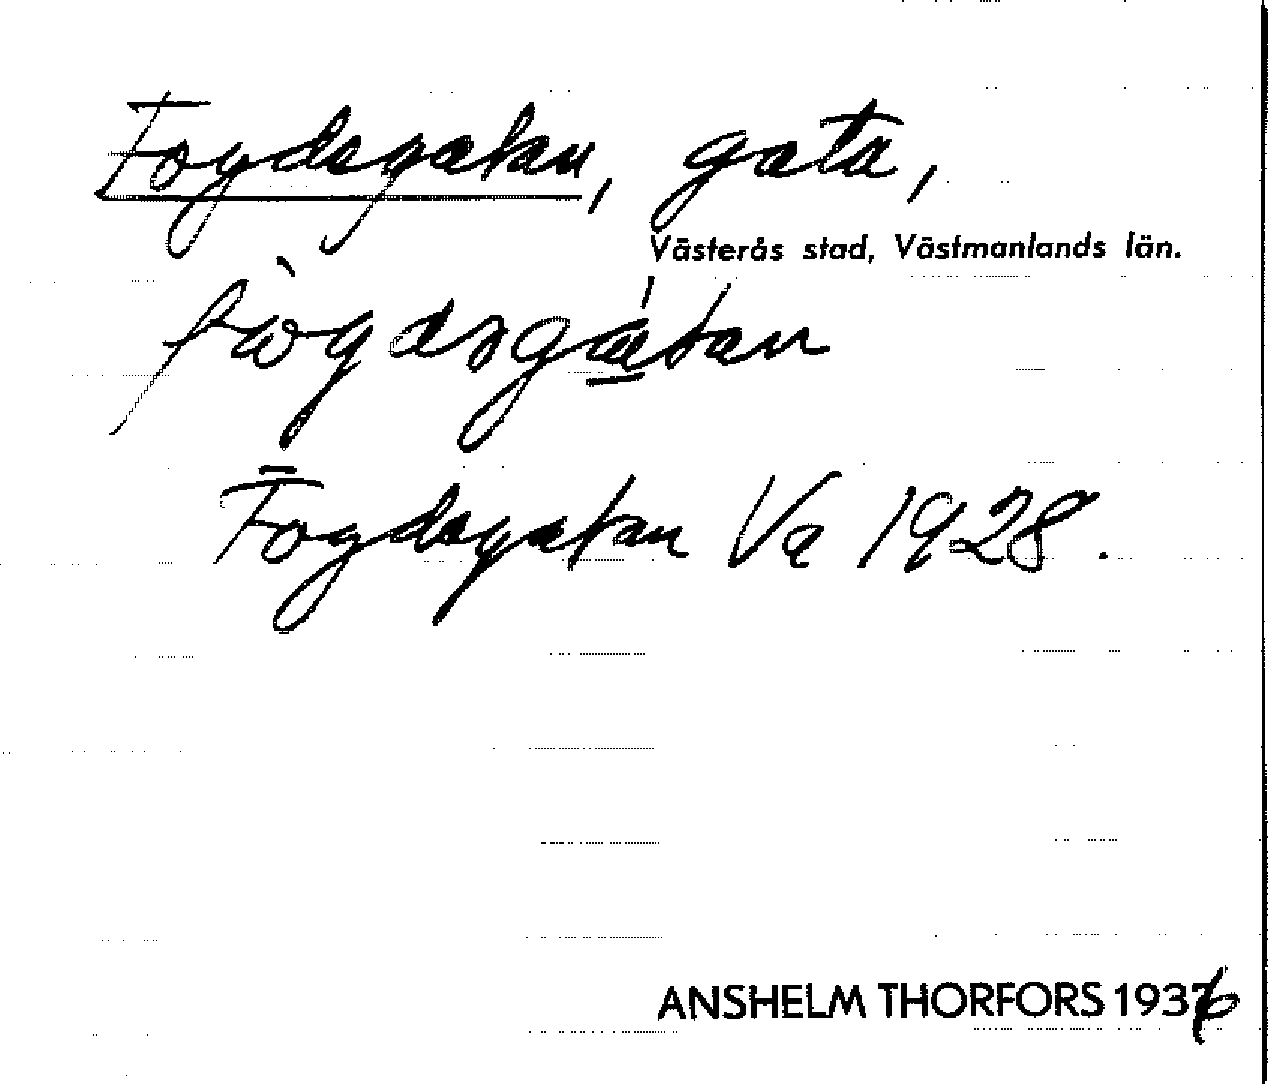 Fogdsgatan, gata,
Västerås stad, Västmanlands län.
fò̀gdsgátan
= Fogdsgatan Va 1928.
ANSHELM THORFORS 1936